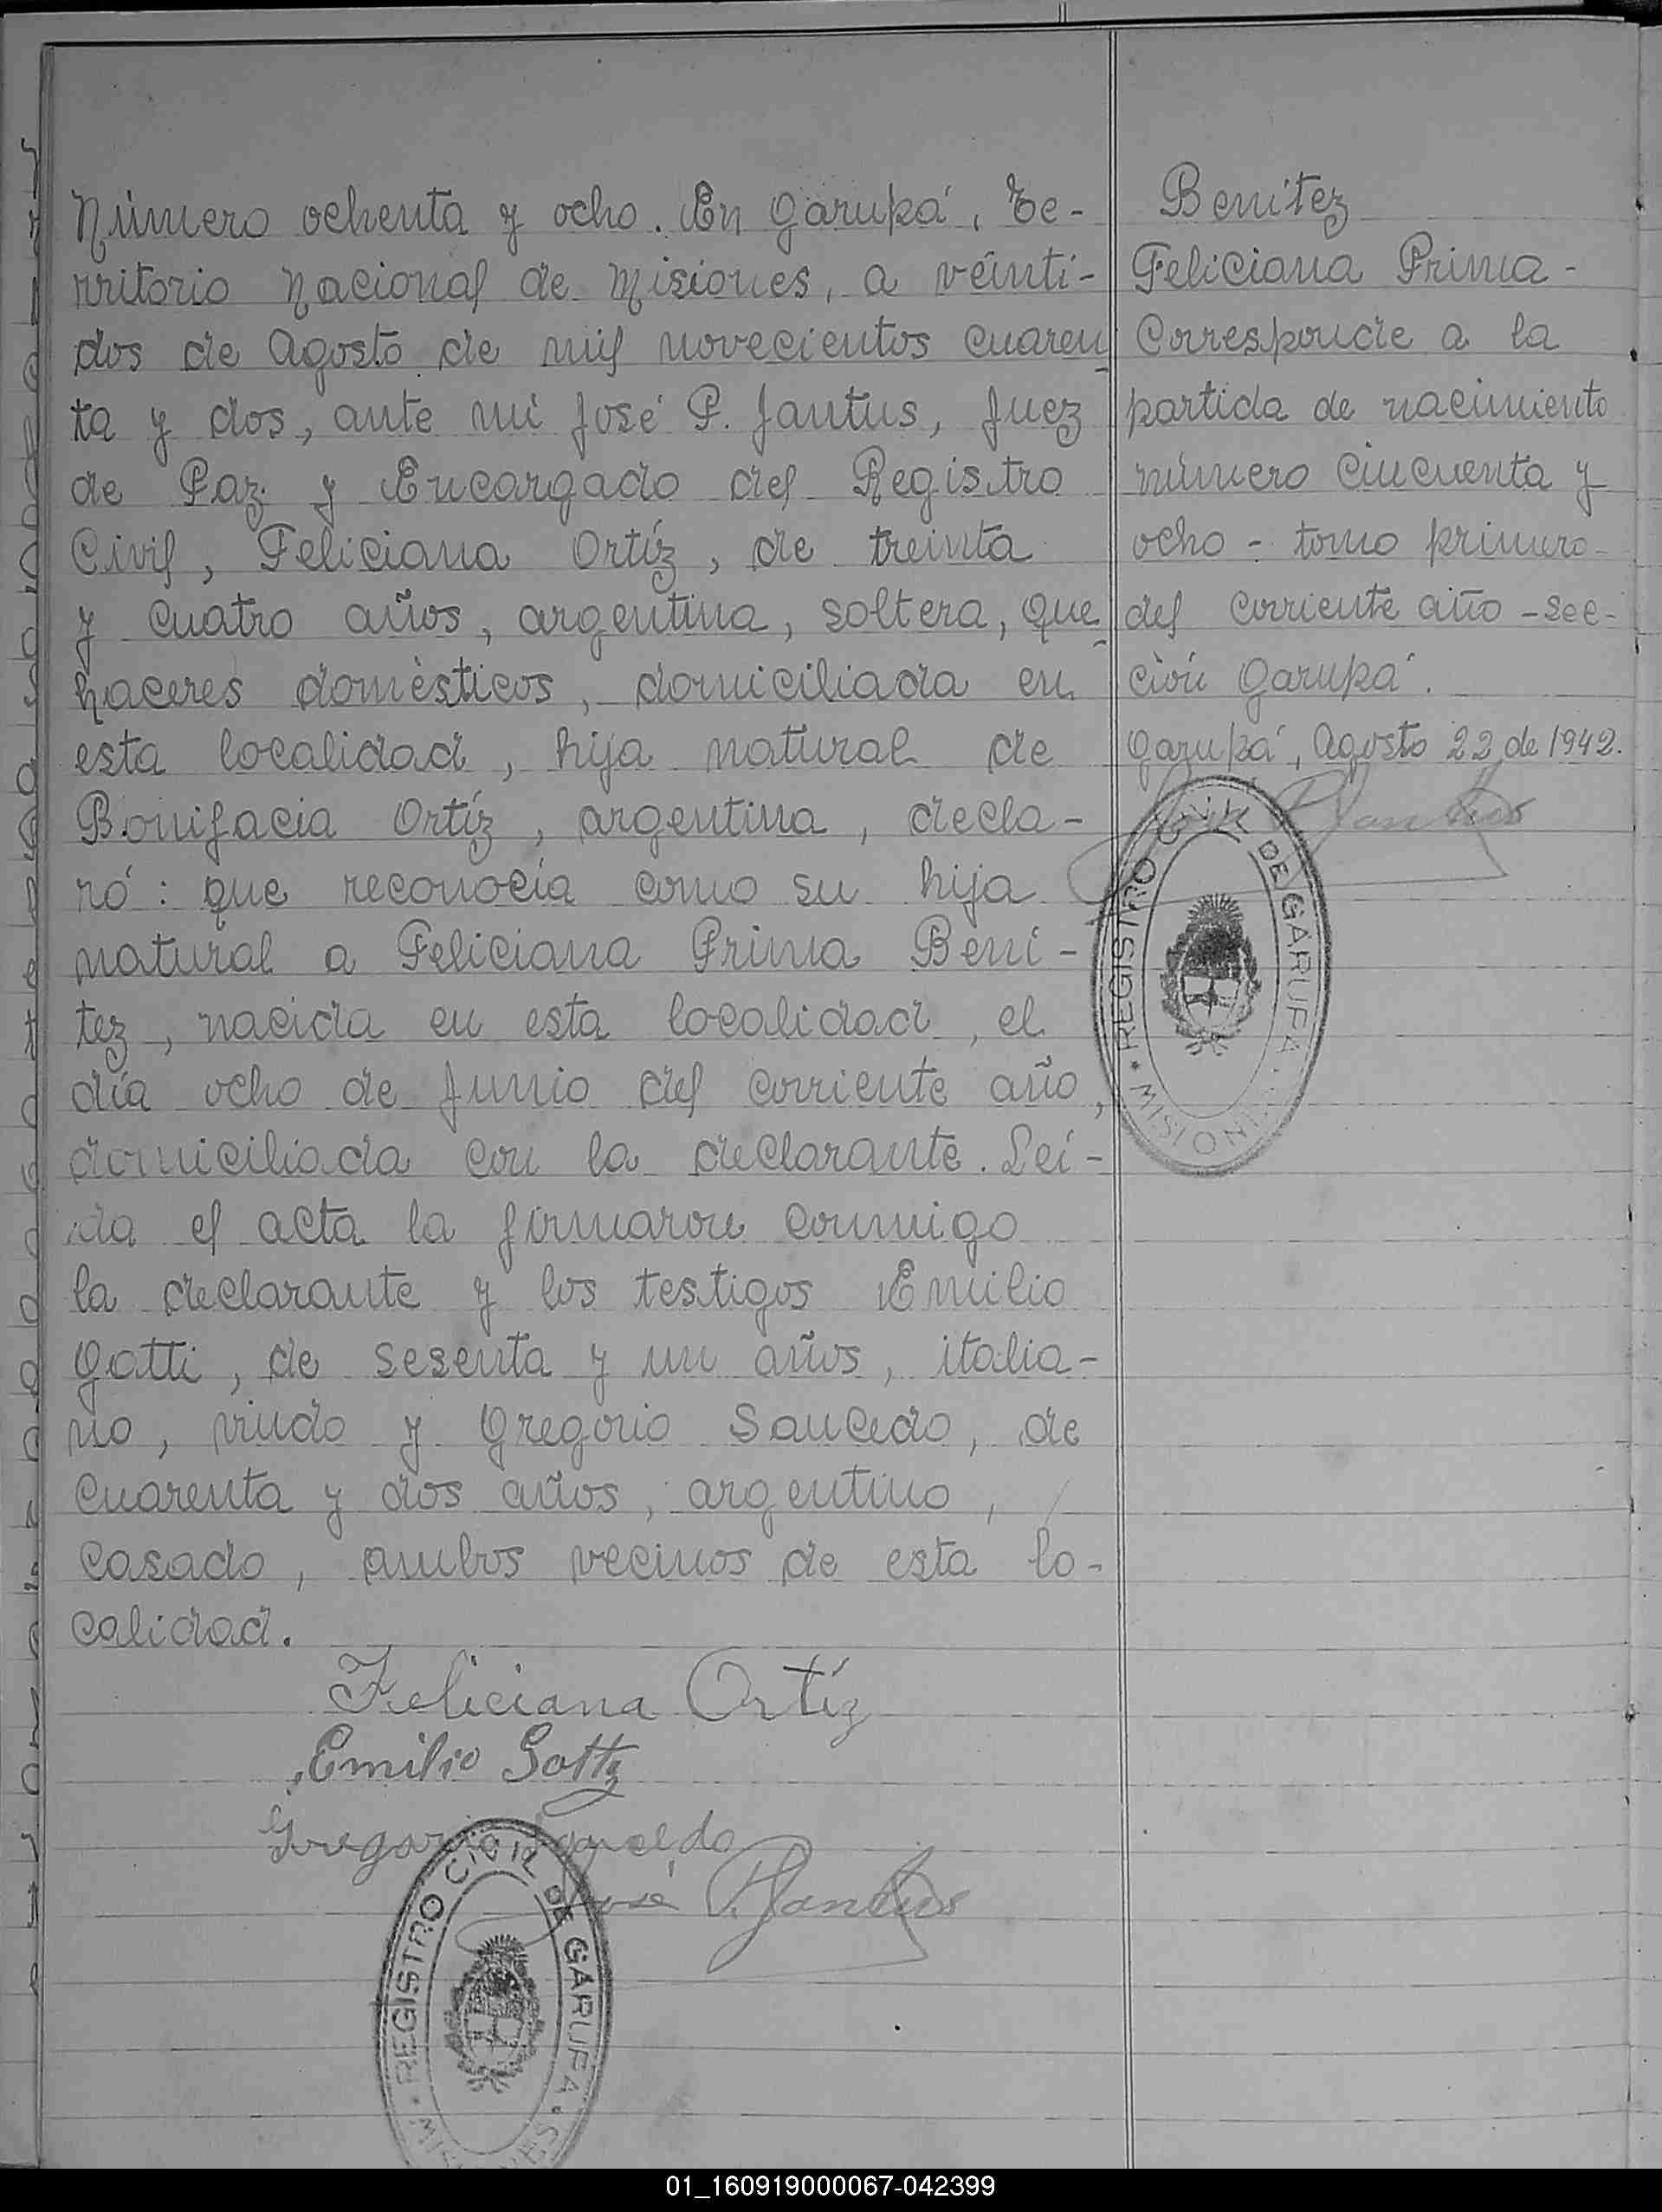 Número ochenta y ocho. En Garupá, Te-
rritorio Nacional de Misiones, a veinti-
dos de Agosto de mil novecientos cuaren
ta y dos, ante mi José P. Jantus, Juez
de Paz y Encargado del Registro
Civil, Feliciana Ortíz, de treinta
y cuatro años, argentina, soltera, que
haceres domèsticos, domiciliada en
esta localidad, hija natural de
Bonifacia Ortíz, argentina, decla-
ró: que reconocía como su hija
natural a Feliciana Prima Bení-
tez, nacida en esta localidad, el
día ocho de Junio del corriente año,
domiciliada con la declarante. Leí-
da el acta la firmaron conmigo
la declarante y los testigos Emilio
Gatti, de sesenta y un años, italia-
no, viudo y Gregorio Saucedo, de
cuarenta y dos años, argentino,
casado, ambos vecinos de esta lo-
calidad.
Feliciana Ortíz
Emilio Gatti
Gregorio Saucedo
José P. Jantus
REGISTRO CIVIL DE GARUPA
MISIONES
Benítez
Feliciana Prima-
Corresponde a la
partida de nacimiento
número cincuenta y
ocho - tomo primero-
del corriente año -sec-
ción Garupá.
Garupá, Agosto 22 de 1942.
José P. Jantus
REGISTRO CIVIL DE GARUPA
MISIONES
01_160919000067-042399